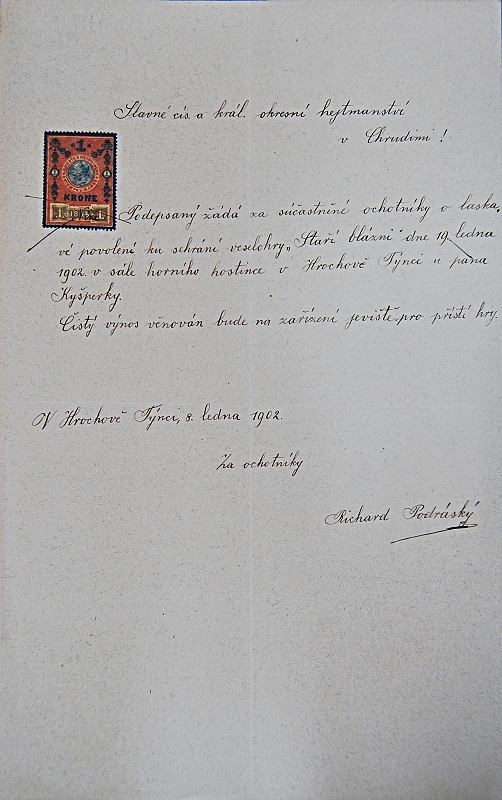 Slavné cís. a král. okresní hejtmanství
v Chrudimi!
1
KRONE
Podepsaný žádá za súčastněné ochotníky o laska,
vé povolení ku sehrání veselohry „Staří blázni" dne 19. ledna
1902. v sále horního hostince v Hrochově Týnci u pana
Kyšperky.
Čistý výnos věnován bude na zařízení jeviště pro příští hry.
V Hrochově Týnci, 8. ledna 1902.
Za ochotníky
Richard Podráský